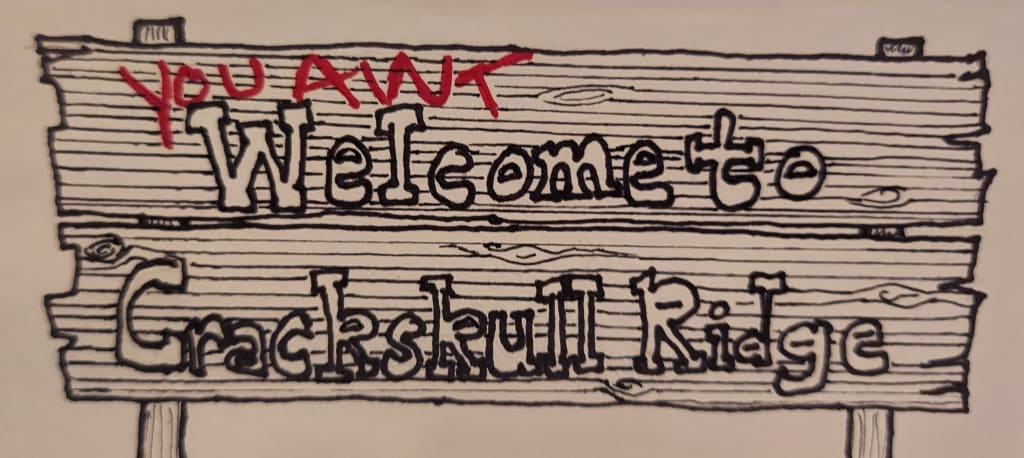 YOU AWT
Welcome to
Crackskull Ridge